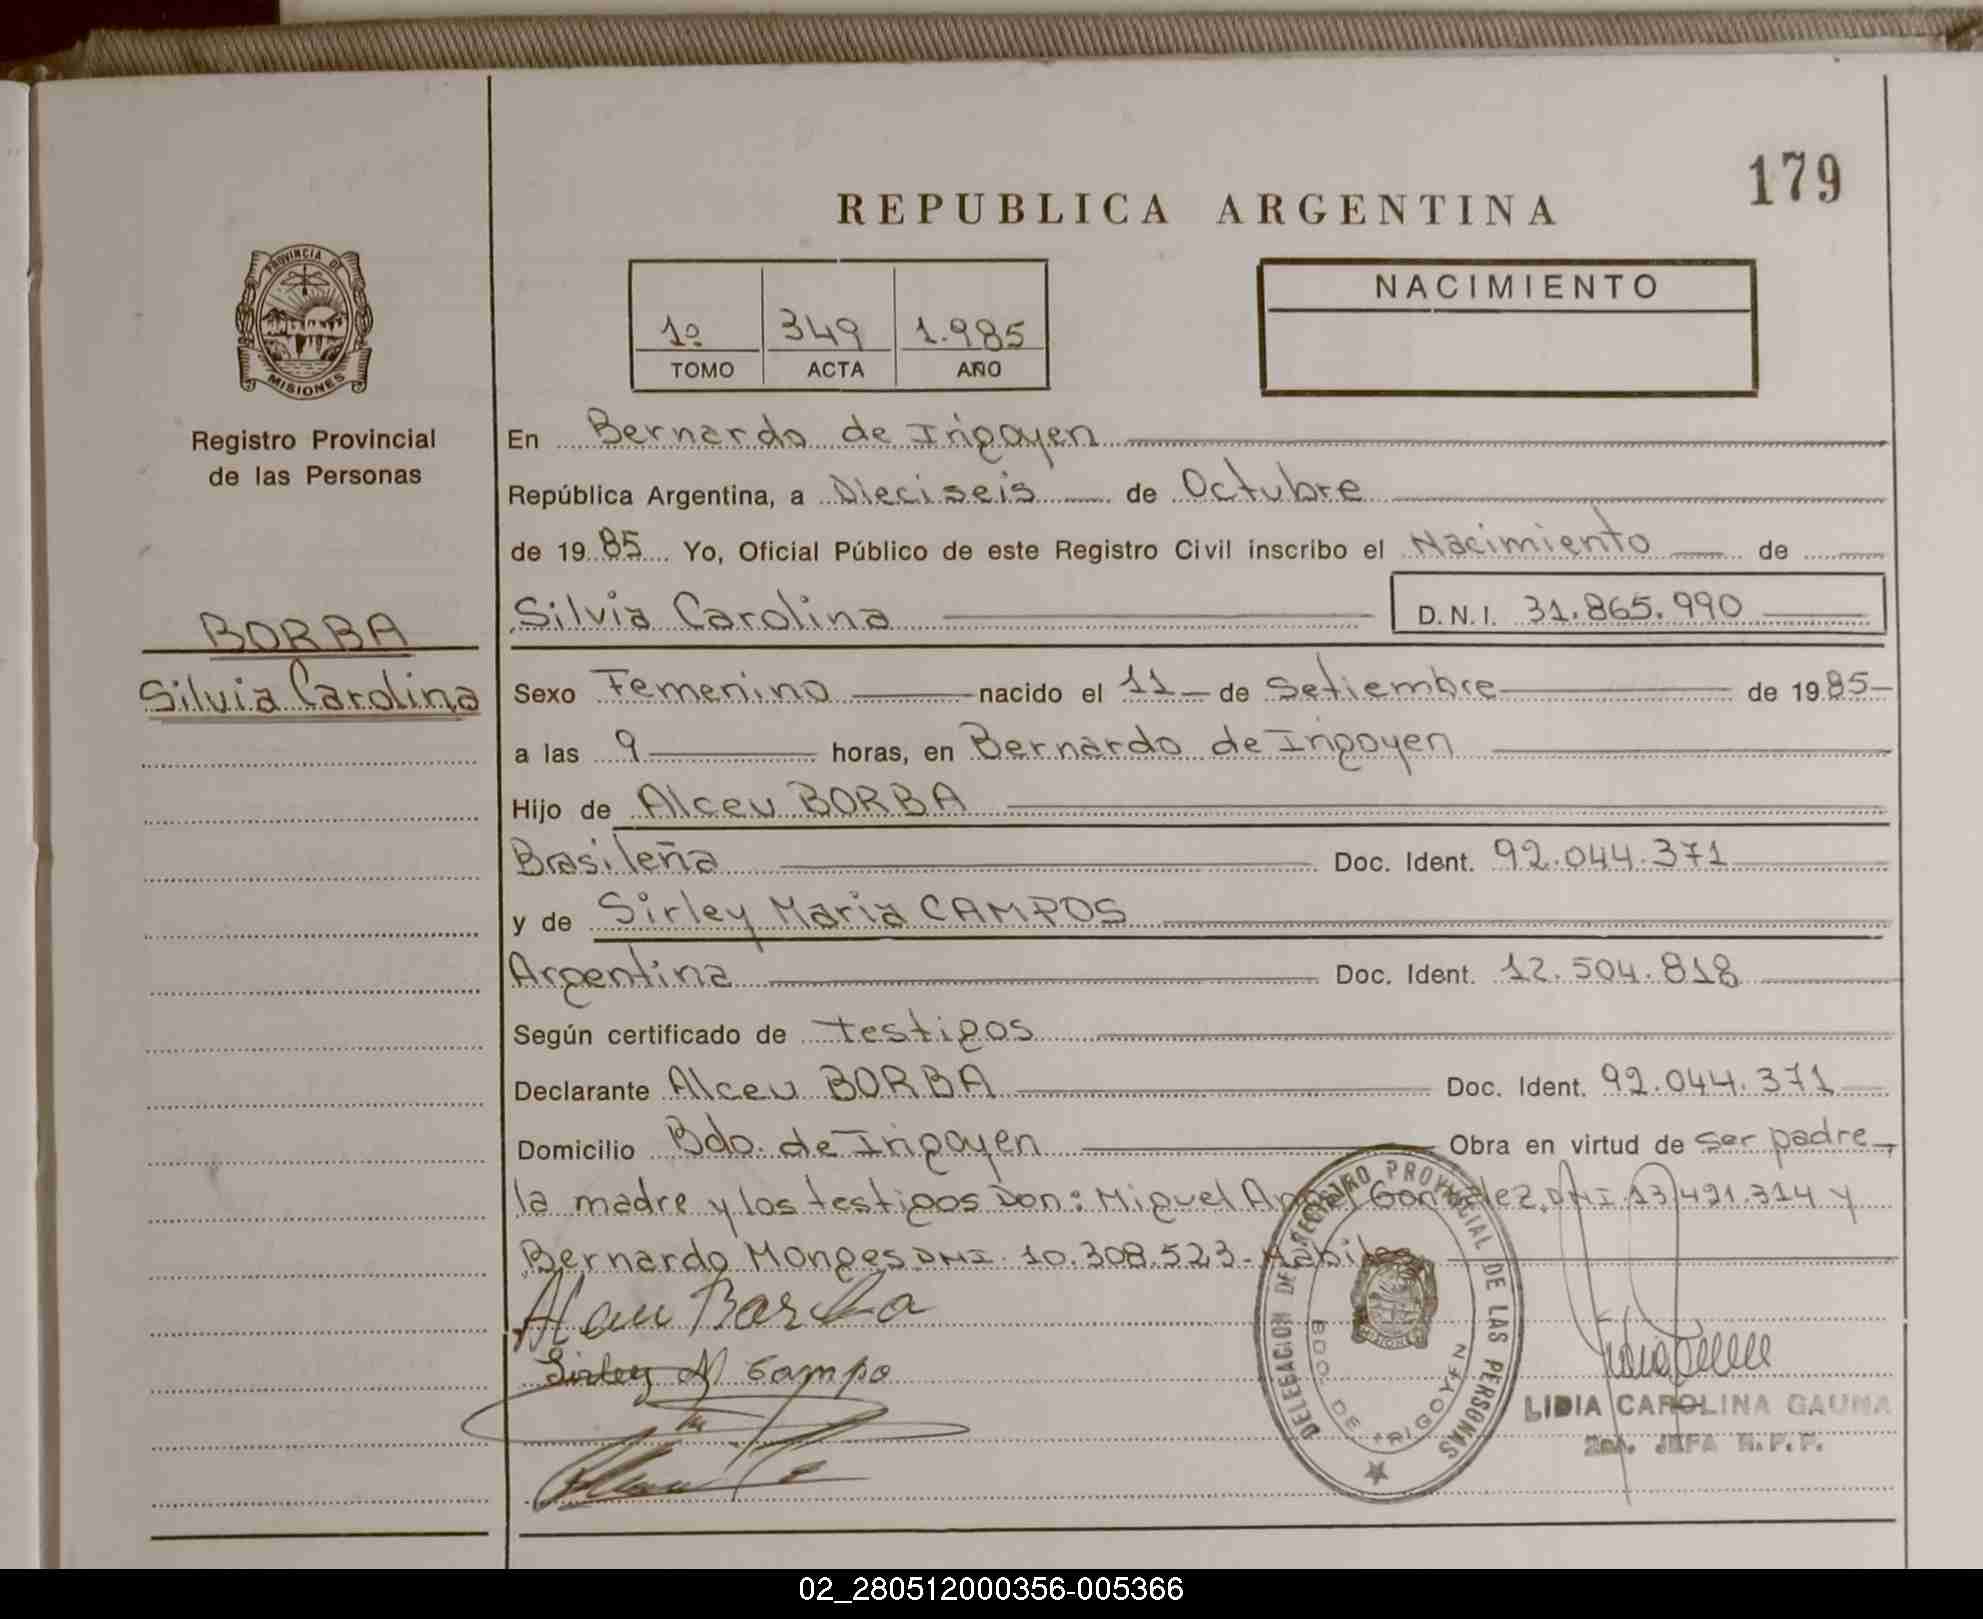 179
REPUBLICA ARGENTINA
PROVINCIA DE
MISIONES
Registro Provincial
de las Personas
BORBA
Silvia Carolina
1º 349 1.985
TOMO ACTA AÑO
NACIMIENTO
En Bernardo de Irigoyen
República Argentina, a Dieciseis de Octubre
de 19 85 Yo, Oficial Público de este Registro Civil inscribo el Nacimiento de
Silvia Carolina D.N.I. 31.865.990
Sexo Femenino nacido el 11 de Setiembre de 19 85
a las 9 horas, en Bernardo de Irigoyen
Hijo de Alceu BORBA
Brasileña Doc. Ident. 92.044.371
y de Sirley Maria CAMPOS
Argentina Doc. Ident. 12.504.818
Según certificado de testigos
Declarante Alceu BORBA Doc. Ident. 92.044.371
Domicilio Bdo. de Irigoyen Obra en virtud de ser padre,
la madre y los testigos Don: Miguel Angel Gonzalez, DNI 13.491.314 y
Bernardo Monges DNI 10.308.523 - Habiles
Alceu Borba
Sirley M Campo
DELEGACION DE REGISTRO PROVINCIAL DE LAS PERSONAS
BDO. DE IRIGOYEN
MISIONES
LIDIA CAROLINA GAUNA
2da. JEFA R.P.P.
02_280512000356-005366